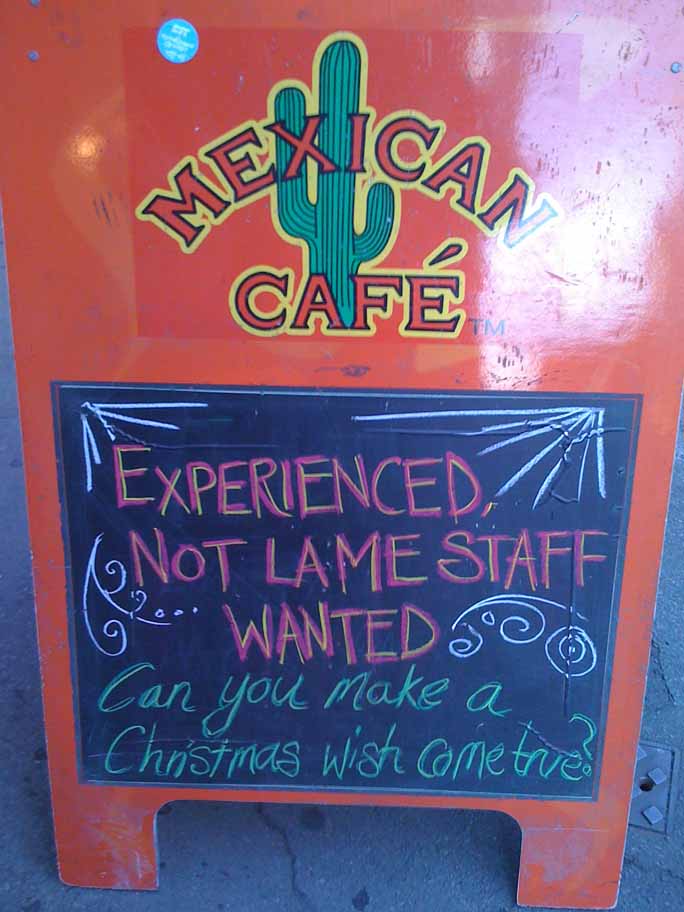 MEXICAN
CAFÉ TM
EXPERIENCED,
NOT LAME STAFF
WANTED
Can you make a
Christmas wish come true?